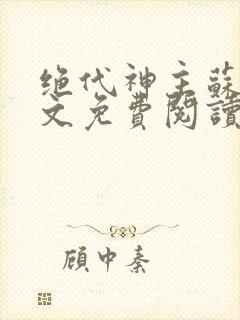 绝代神主蘇
文免費閱讀
顾中秦